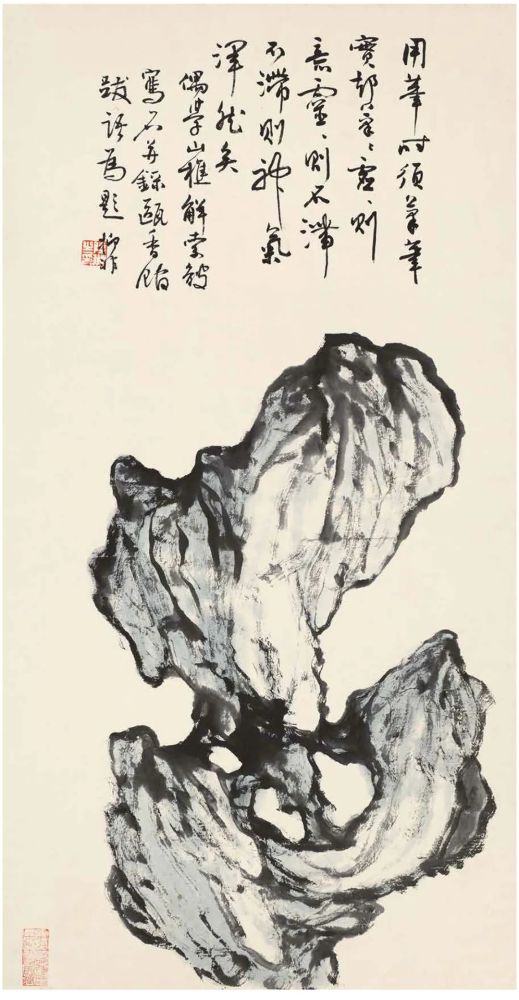 用筆時須筆筆
實却筆々虛々則
意靈々則不滯
不滯則神氣
渾然矣
偶學山樵解索皴
寫石并錄甌香館
跋語為題 抑非